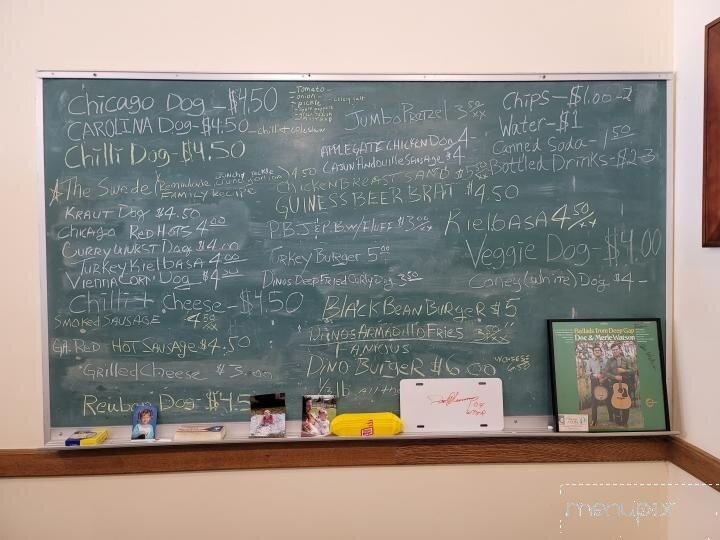 Chicago Dog - $4.50
CAROLINA DOG - $4.50 chilli + coleslaw
Chilli Dog - $4.50
Tomato -
onion -
pickle
celery salt
The Swede
FAMILY Recipe
4.50
KRAUT DOG $4.50
CHICAGO RED HOTS 4 00
CURRYWURST DOG $4.00
TURKEY KIELBASA 4 00
VIENNA CORN DOG $4
Chilli + Cheese - $4.50
SMOKED SAUSAGE 4 50/xx
GA. RED HOT SAUSAGE $4.50
GRilled Cheese $3.00
Reuben Dog - $4.5
Jumbo Pretzel 3 50/xx
APPLEGATE CHICKEN DOG 4 -
CAJUN ANDOUILLE SAUSAGE $4
CHICKEN BREAST SAND $5
GUINESS BEER BRAT $4.50
P.B. J & P.BW/FLUFF $3 00/xx
Turkey Burger 5 00
DINOS DEEP FRIED CURLY DOG 3 50
BLACK BEAN BURGER $5
"DINOS ARMADILLO FRIES 3 50/xx
FAMOUS
DINO BURGER $6.00
W/CHEESE 6 50
1/3 lb all the
Chips - $1.00 - 2
Water - $1
Canned Soda - 1 50
Bottled Drinks - $2-3
Kielbasa 4 50/xx
Veggie Dog - $4.00
Coney (white) Dog $4 -
Ballads from Deep Gap
Doc & Merle Watson
menupix